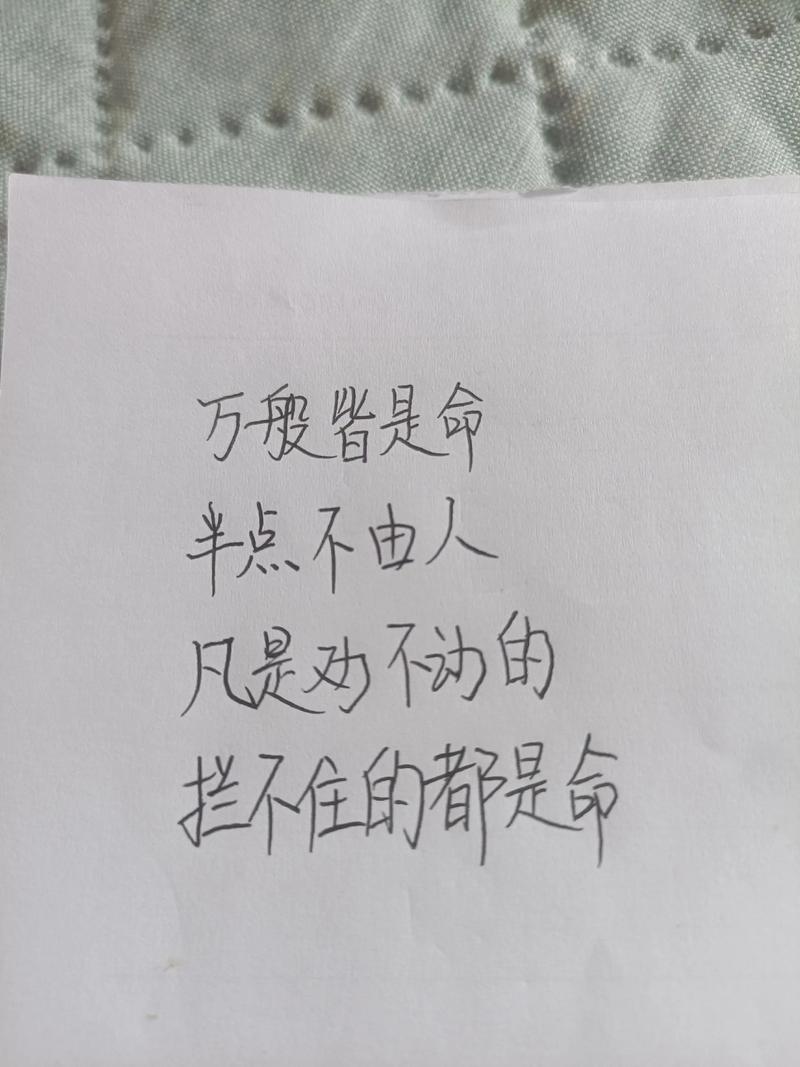 万般皆是命
半点不由人
凡是劝不动的
拦不住的都是命